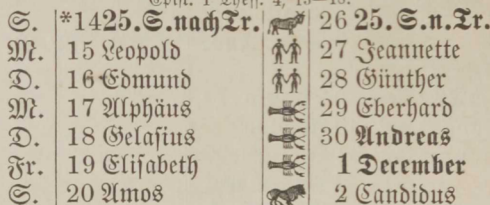 S. *14 25. S. nach Tr. 26 25. S. n. Tr.
M. 15 Leopold 27 Jeannette
D. 16 Edmund 28 Günther
M. 17 Alphäus 29 Eberhard
D. 18 Gelasius 30 Andreas
Fr. 19 Elisabeth 1 December
S. 20 Amos 2 Candidus